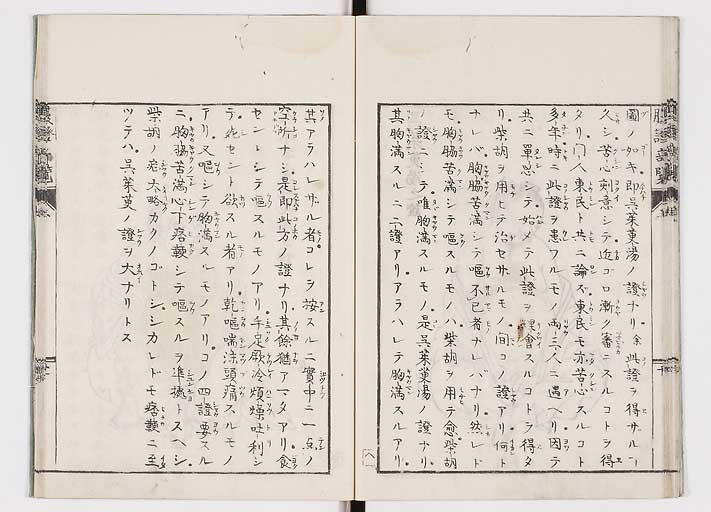 圖ノ如キ即呉茱萸湯ノ證ナリ余此證ヲ得サルコト
久シ苦心刻意シテ近コロ漸ク審ニスルコトヲ得
タリ門人東民ト共ニ論ズ東民モ亦苦心スルコト
多年時ニ此證ヲ患フルモノ両三人ニ遇ヘリ因テ
共ニ單思シテ始メテ此證ヲ理會スルコトヲ得タ
リ柴胡ヲ用ヒテ治セサルモノ間コノ證アリ何ト
ナレバ胸脇苦滿シテ嘔不已者ナレバナリ然レド
モ胸脇苦滿シテ嘔スルモノハ柴胡ヲ用テ愈柴胡
ノ證ニシテ唯胸滿スルモノ是呉茱萸湯ノ證ナリ
其胸滿スルニ二證アリアラハレテ胸滿スルアリ
其アラハレサル者コレヲ按スルニ實中ニ一点ノ
空所ナシ是即此方ノ證ナリ其餘猶アマタアリ食
セントシテ嘔スルモノアリ手足厥冷煩燥吐利シ
テ死セント欲スル者アリ乾嘔喘涎頭痛スルモノ
アリ又嘔シテ胸滿スルモノアリコノ四證要スル
ニ胸脇苦滿心下痞鞕シテ嘔スルヲ準拠トスヘシ
柴胡ノ症大略カクノゴトシシカレドモ痞鞕ニ至
ツテハ呉茱萸ノ證ヲ大ナリトス